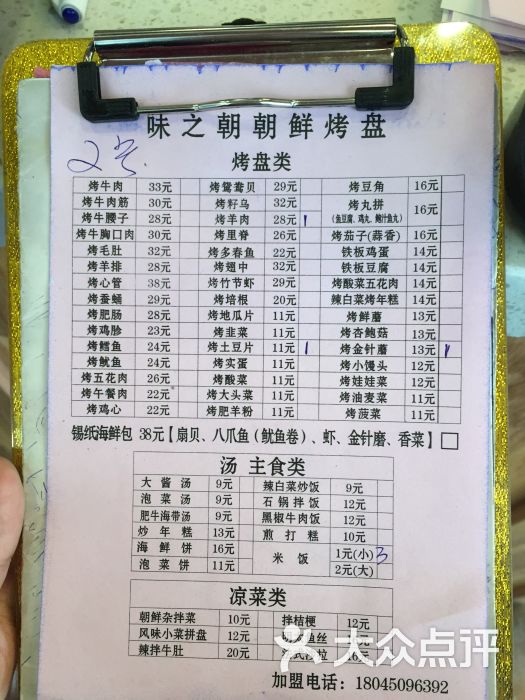 味之朝朝鲜烤盘
2号
烤盘类
烤牛肉 33元 烤鸳鸯贝 29元 烤豆角 16元
烤牛肉筋 30元 烤籽乌 32元 烤丸拼 16元
烤牛腰子 28元 烤羊肉 28元 1 (鱼豆腐、鸡丸、鲍汁鱼丸)
烤牛胸口肉 30元 烤里脊 26元 烤茄子(蒜香) 16元
烤毛肚 32元 烤多春鱼 22元 铁板鸡蛋 14元
烤羊排 28元 烤翅中 32元 铁板豆腐 14元
烤心管 38元 烤竹节虾 29元 烤酸菜五花肉 14元
烤蚕蛹 29元 烤培根 20元 辣白菜烤年糕 14元
烤肥肠 28元 烤地瓜片 11元 烤鲜蘑 13元
烤鸡胗 23元 烤韭菜 11元 烤杏鲍菇 13元
烤鳕鱼 24元 烤土豆片 11元 1 烤金针蘑 13元 1
烤鱿鱼 24元 烤实蛋 11元 烤小馒头 12元
烤五花肉 26元 烤酸菜 11元 烤娃娃菜 12元
烤午餐肉 22元 烤大头菜 11元 烤油麦菜 11元
烤鸡心 22元 烤肥羊粉 11元 烤菠菜 11元
锡纸海鲜包 38元【扇贝、八爪鱼(鱿鱼卷)、虾、金针蘑、香菜】
汤 主食类
大酱汤 9元 辣白菜炒饭 9元
泡菜汤 9元 石锅拌饭 12元
肥牛海带汤 9元 黑椒牛肉饭 12元
炒年糕 13元 煎打糕 10元
海鲜饼 16元 米饭 1元(小) 3
泡菜饼 11元 2元(大)
凉菜类
朝鲜杂拌菜 10元 拌桔梗 12元
风味小菜拼盘 12元 鱼丝
辣拌牛肚 20元
大众点评
加盟电话：18045096392